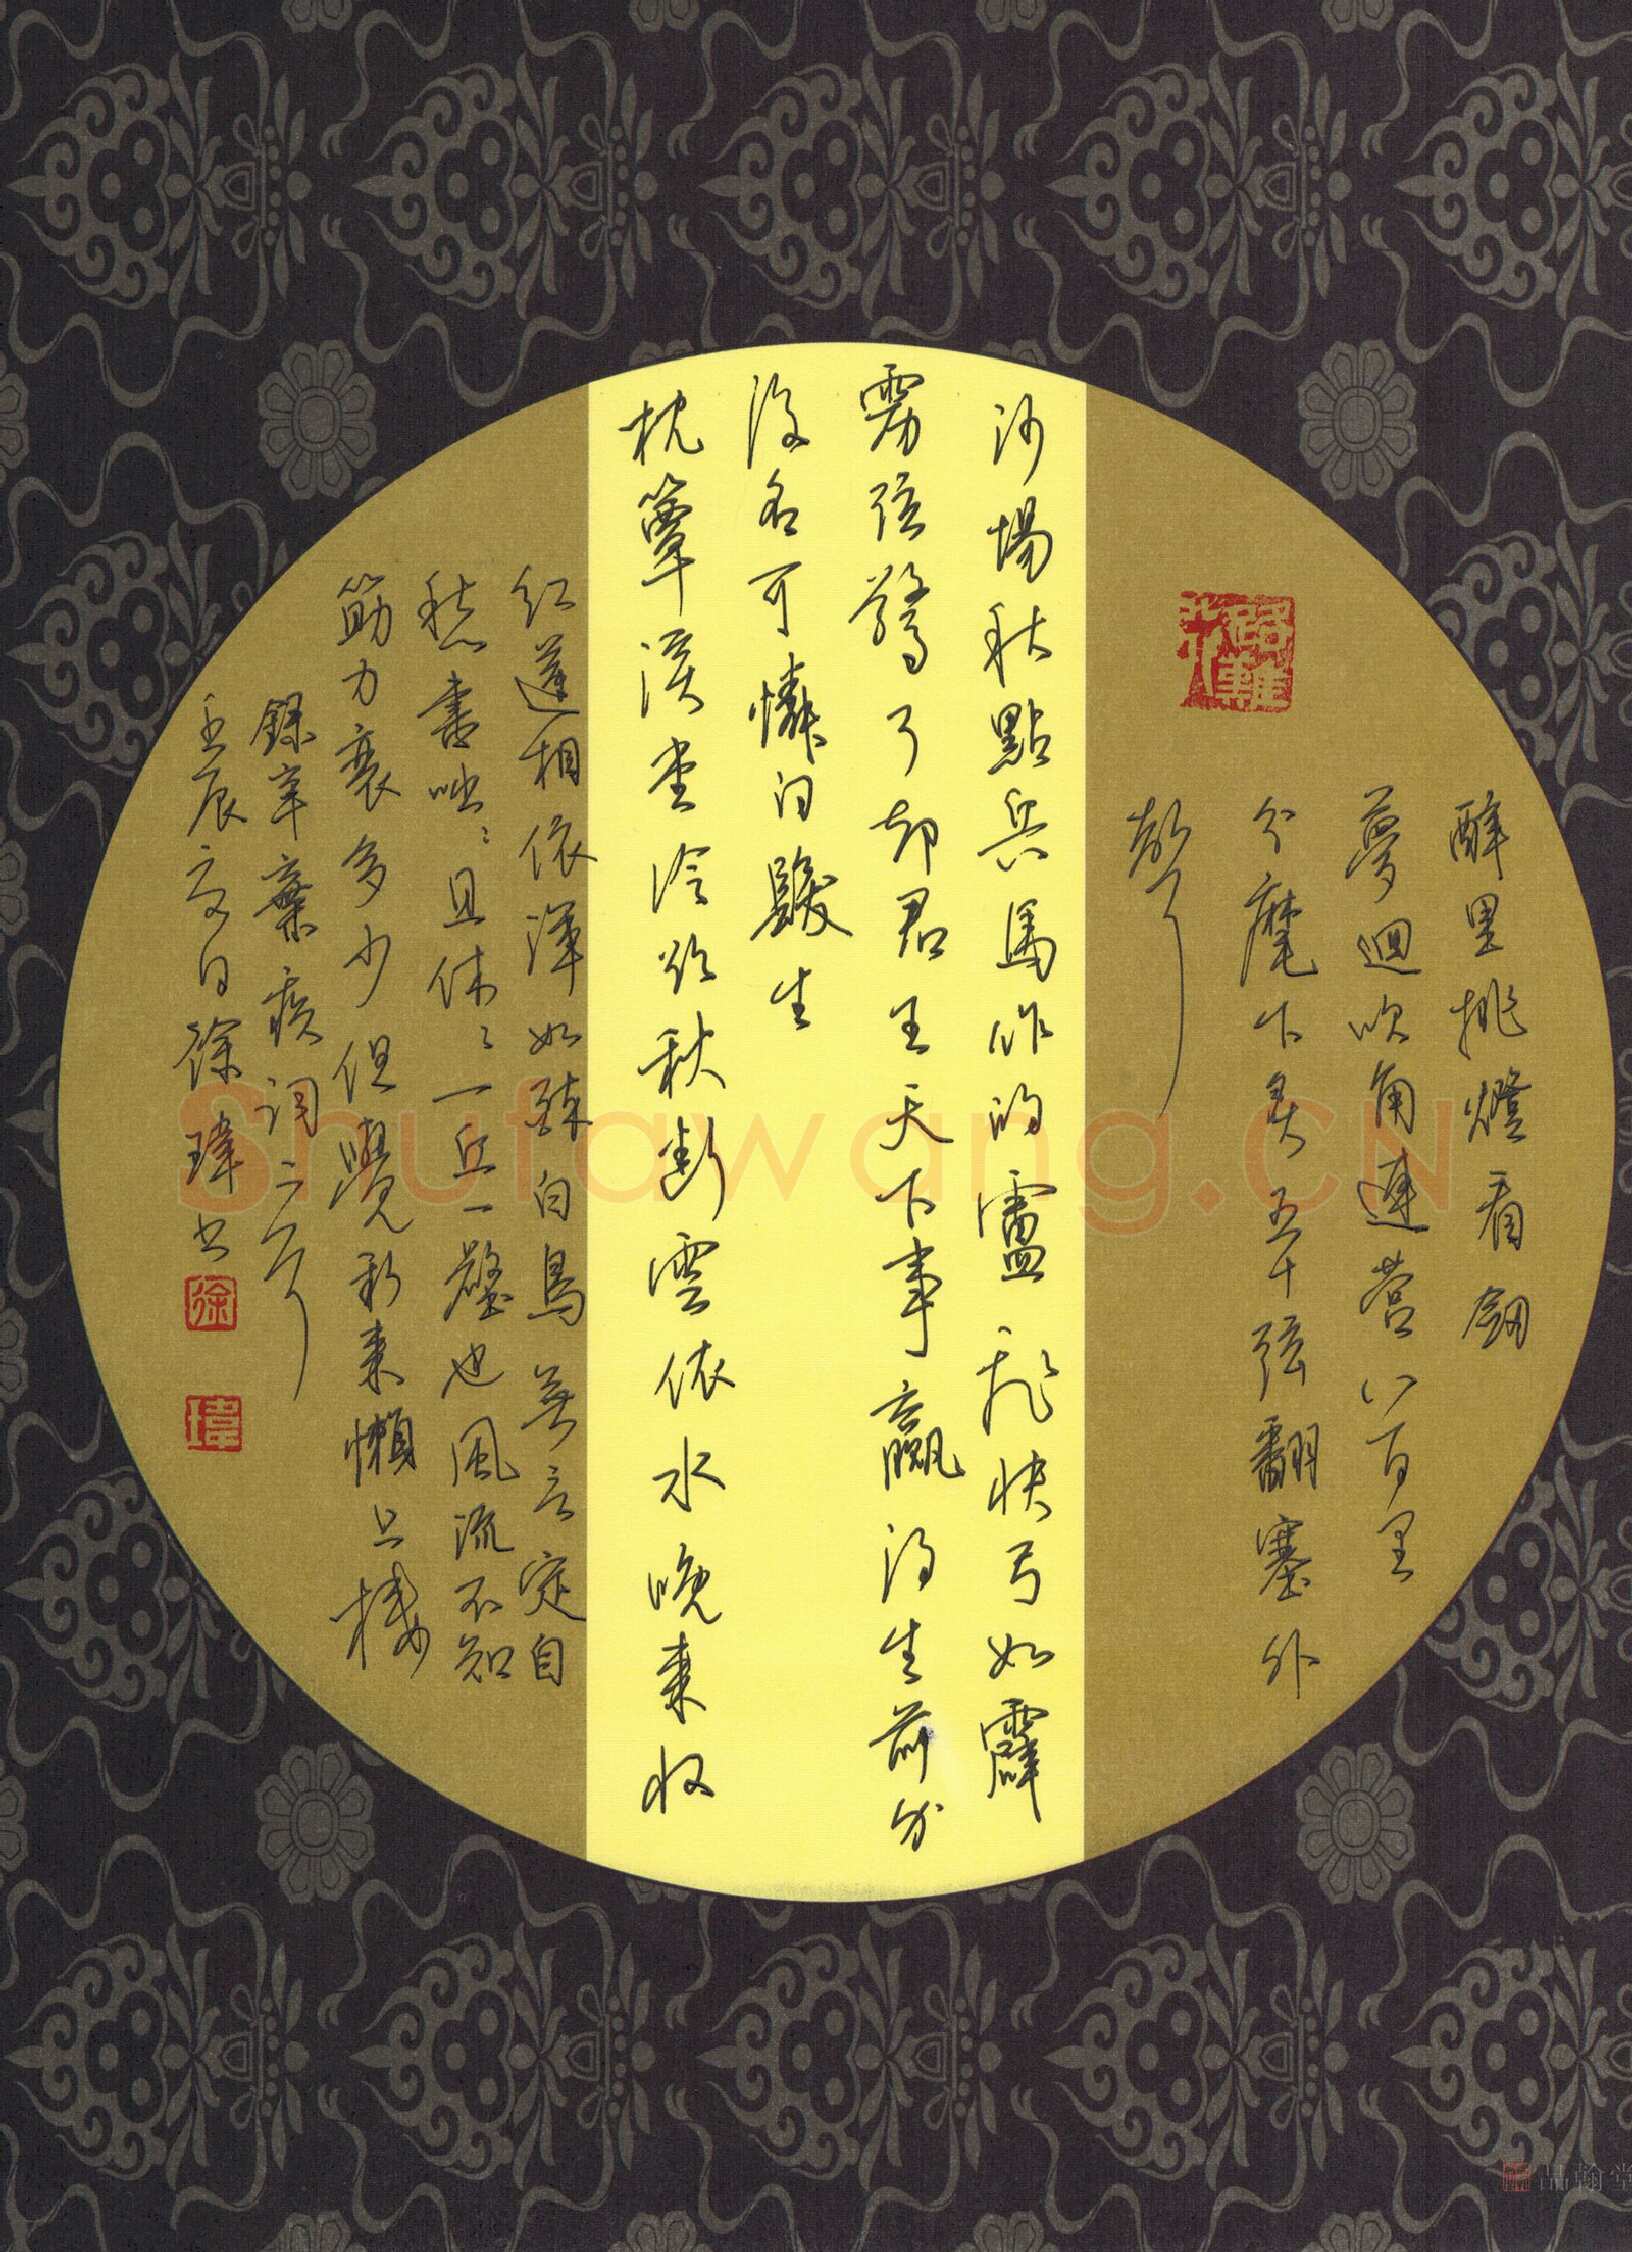 醉里挑燈看劒
夢迴吹角連营八百里
分麾下炙五十弦翻塞外
聲
沙場秋點兵馬作的盧飛快弓如霹
靂弦驚了却君王天下事贏得生前身
後名可憐白髮生
枕簟溪堂冷欲秋斷雲依水晚来收
红蓮相依渾如醉白鳥無言定自
愁書咄ミ且休ミ一丘一壑也風流不知
筋力衰多少但覺新来懶上樓
錄辛棄疾詞二首
壬辰夏日徐瑋书
徐
瑋
Shufawang.CN
品翰堂